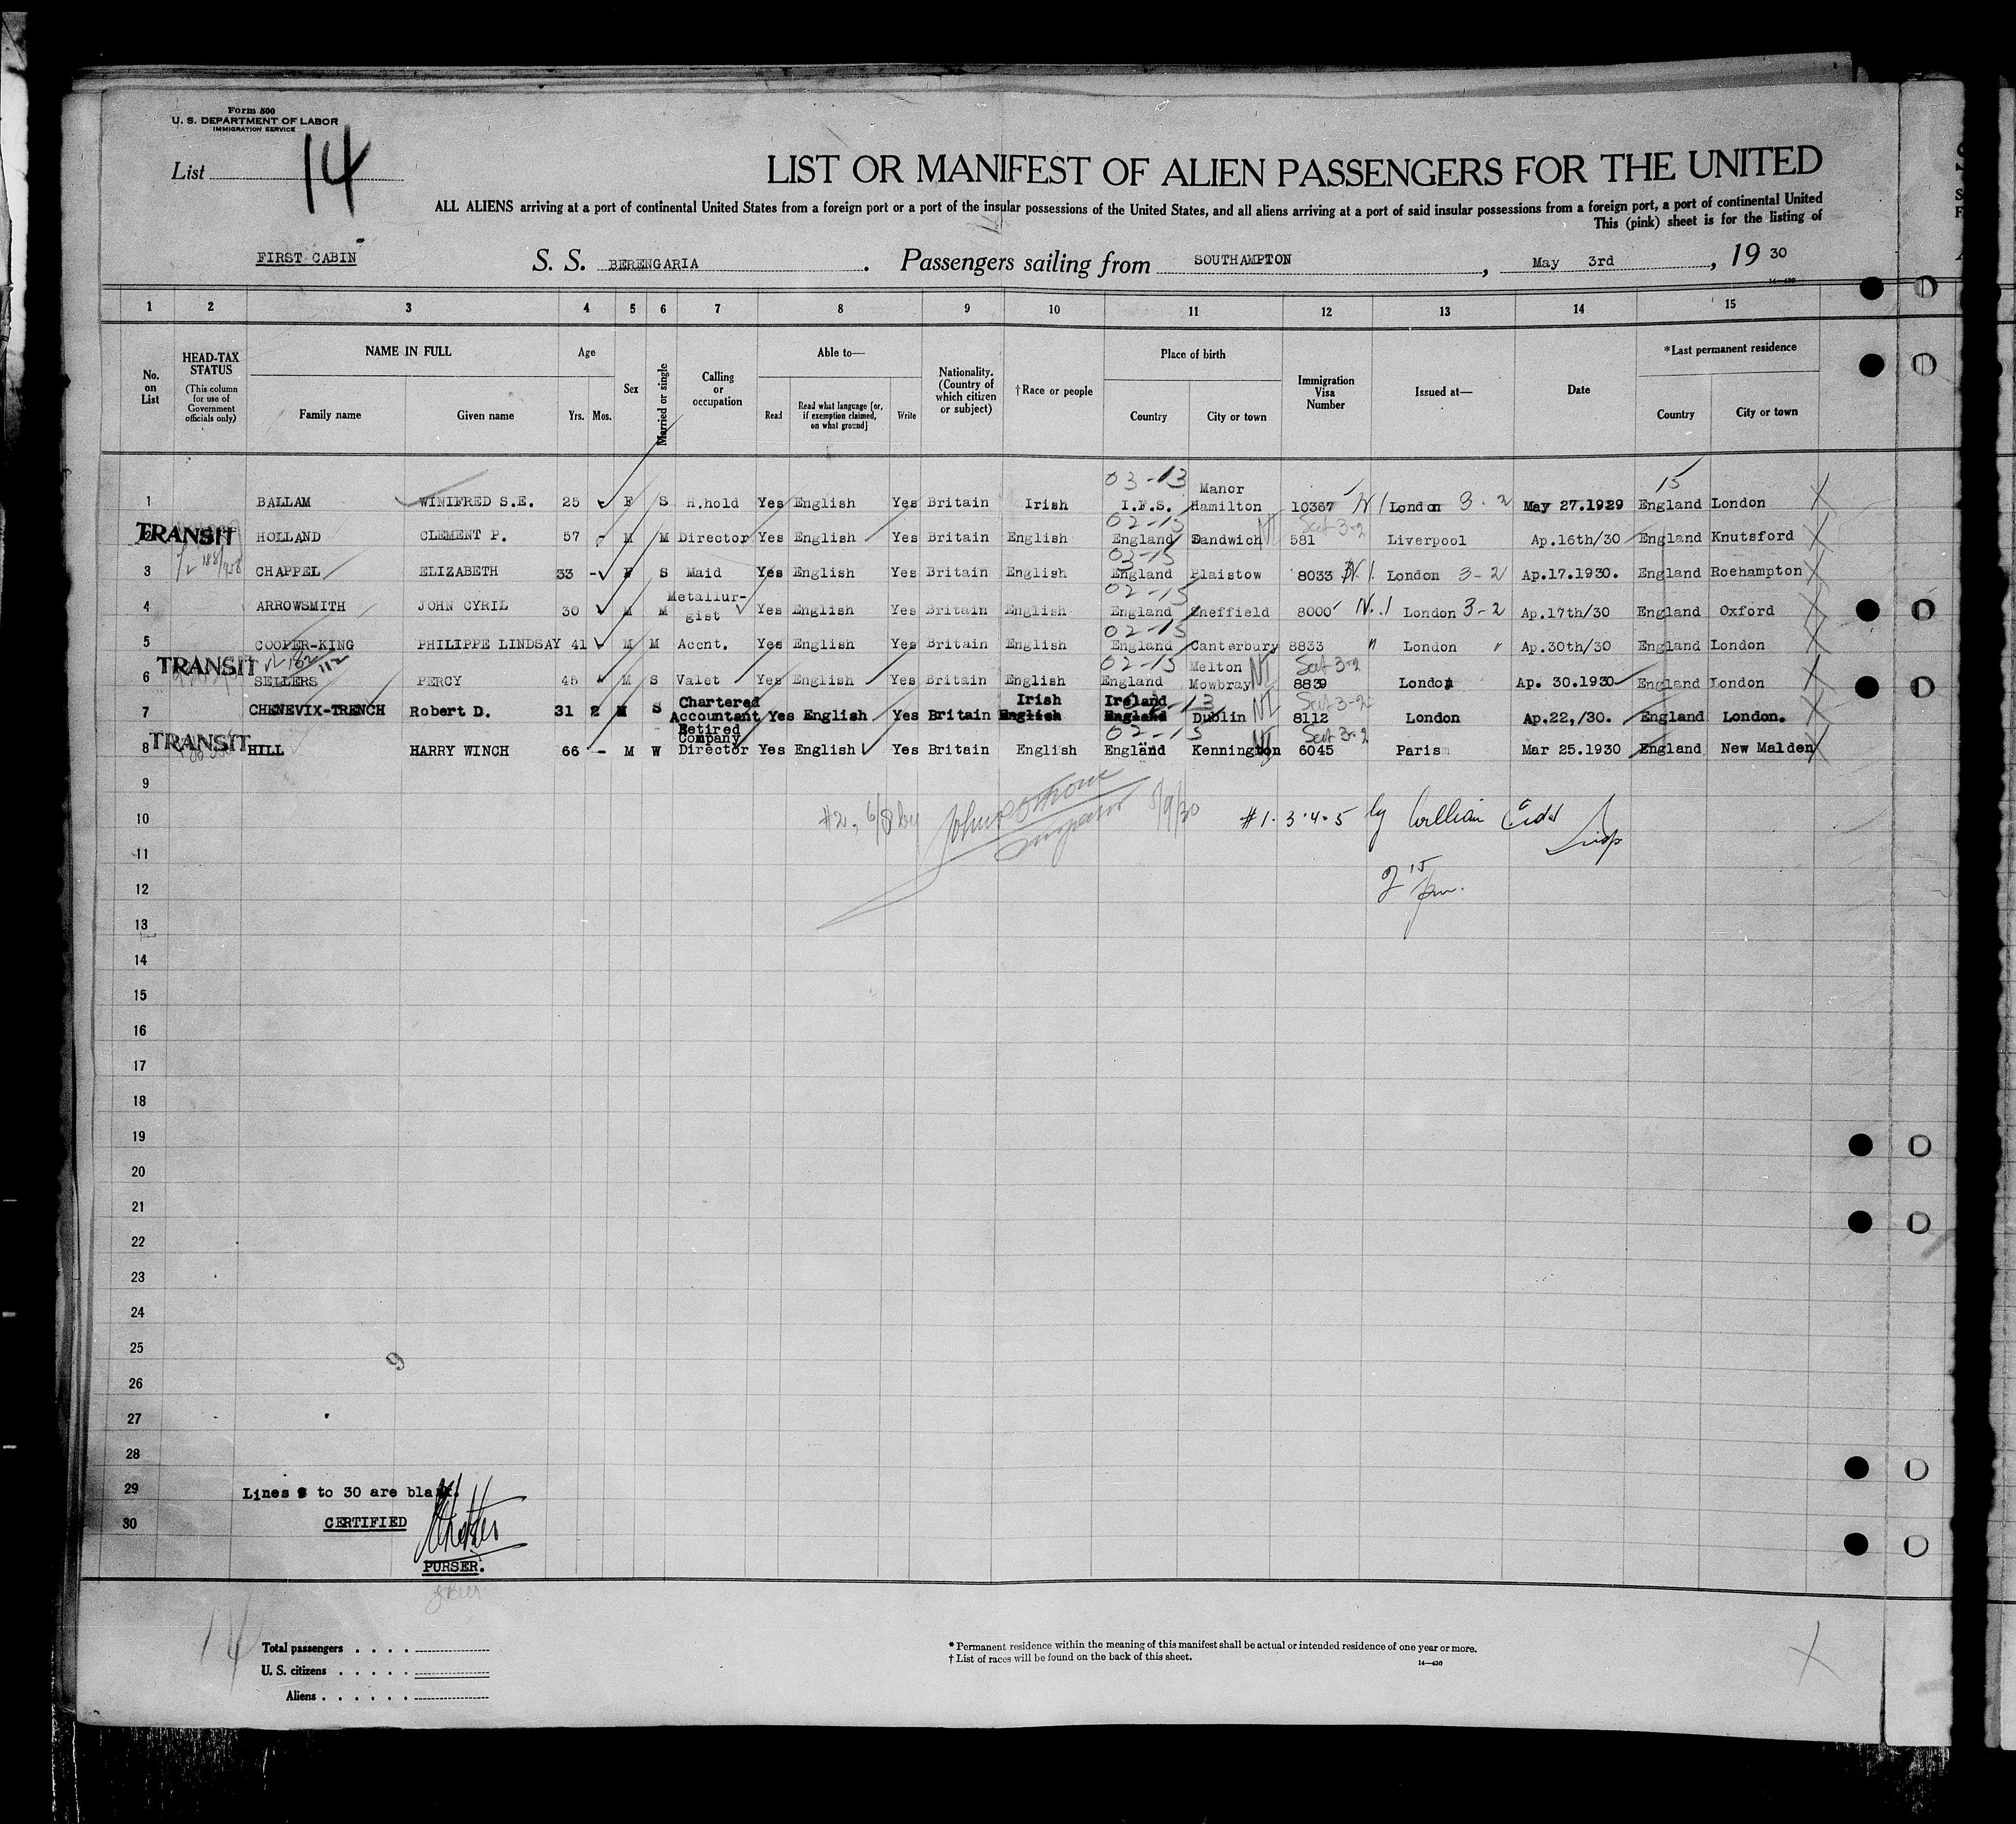 Form 500
U. S. DEPARTMENT OF LABOR
IMMIGRATION SERVICE
List 14
LIST OR MANIFEST OF ALIEN PASSENGERS FOR THE UNITED
ALL ALIENS arriving at a port of continental United States from a foreign port or a port of the insular possessions of the United States, and all aliens arriving at a port of said insular possessions from a foreign port, a port of continental United
This (pink) sheet is for the listing of
FIRST CABIN S. S. BERENGARIA . Passengers sailing from SOUTHAMPTON , May 3rd , 19 30
1 2 3 4 5 6 7 8 9 10 11 12 13 14 15
No. on List
HEAD-TAX STATUS (This column for use of Government officials only)
NAME IN FULL Family name Given name
Age Yrs. Mos.
Sex
Married or single
Calling or occupation
Able to— Read Read what language [or, if exemption claimed, on what ground] Write
Nationality. (Country of which citizen or subject)
†Race or people
Place of birth Country City or town
Immigration Visa Number
Issued at—
Date
*Last permanent residence Country City or town
03-13 15
1 BALLAM WINIFRED S.E. 25 F S H.hold Yes English Yes Britain Irish I.F.S. Manor Hamilton 10367 N1 London 3-2 May 27.1929 England London
02-15
TRANSIT 2 HOLLAND CLEMENT P. 57 - M M Director Yes English Yes Britain English England Sandwich NI 581 3-2 Liverpool Ap.16th/30 England Knutsford
03-15
3 CHAPPEL ELIZABETH 33 - F S Maid Yes English Yes Britain English England Plaistow 8033 N1 London 3-2 Ap.17.1930. England Roehampton
02-15
4 ARROWSMITH JOHN CYRIL 30 M M Metallurgist Yes English Yes Britain English England Sheffield 8000 N.1 London 3-2 Ap.17th/30 England Oxford
02-15
5 COOPER-KING PHILIPPE LINDSAY 41 M M Accnt. Yes English Yes Britain English England Canterbury 8833 " London " Ap.30th/30 England London
02-15
TRANSIT 6 SELLERS PERCY 45 M S Valet Yes English Yes Britain English England Melton Mowbray NI 3-2 8839 London Ap. 30.1930 England London
7 CHENEVIX-TRENCH Robert D. 31 2 M S Chartered Accountant Yes English Yes Britain Irish English Ireland England Dublin NI 3-2 8112 London Ap.22,/30. England London.
02-15
TRANSIT 8 HILL HARRY WINCH 66 - M W Retired Company Director Yes English Yes Britain English England Kennington NI 3-2 6045 Paris Mar 25.1930 England New Malden
9
10 #2, 6/8 by 5/9/30 #1·3·4·5 by William
11
12 2 15 pm.
13
14
15
16
17
18
19
20
21
22
23
24
25
9
26
27
28
29 Lines to 30 are blank.
30 CERTIFIED
PURSER.
14
Total passengers . . . .
U. S. citizens . . . . .
Aliens . . . . . .
* Permanent residence within the meaning of this manifest shall be actual or intended residence of one year or more.
† List of races will be found on the back of this sheet.
14—430